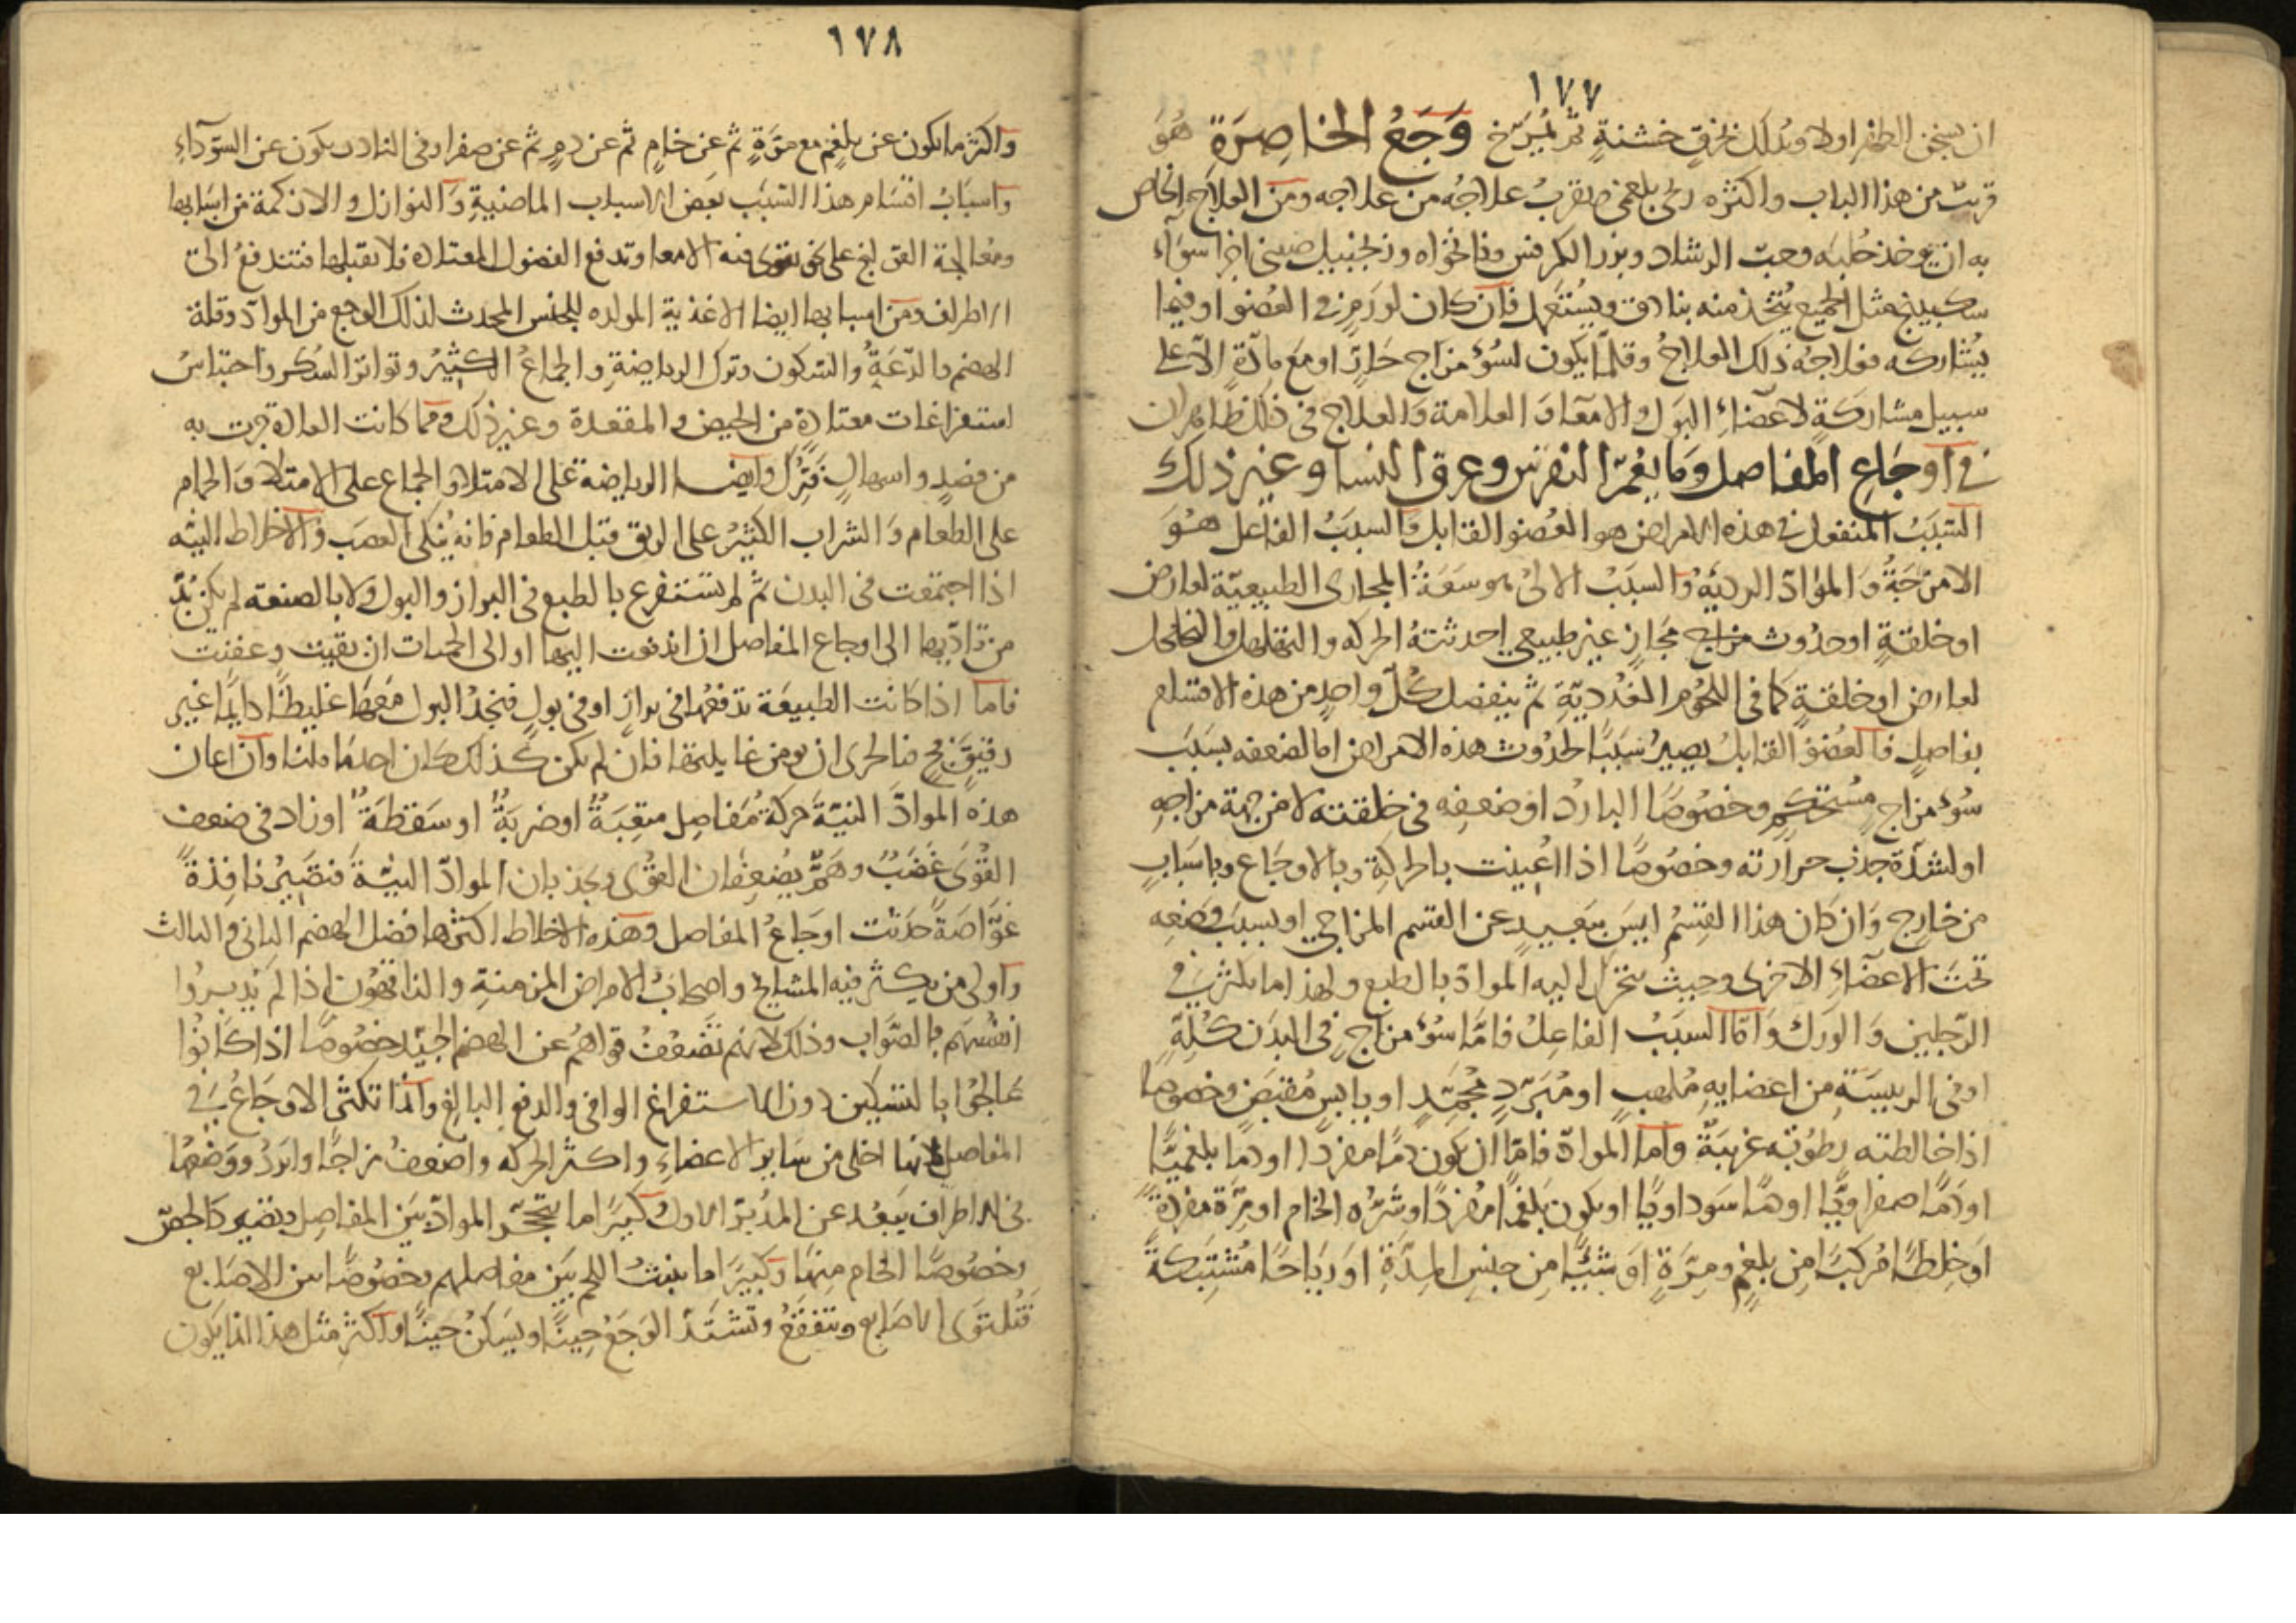 ١٧٧
ان يسخن الظهر اولا ويدلك بخرق خشنةٍ ثم يُمرّخ وَجَعُ الخاصِرَة هُوَ
قريبٌ من هذا الباب واكثره ريحى بلغمى يقرب علاجُه من علاجه ومن العلاج الخاص
به ان يوخذ حُلبه وحب الرشاد وبزر الكرفس ونانخواه وزنجبيل صينى اجزا سوآء
سكبينج مثل الجميع يُتّخذ منه بنادق ويُستَعمل فان كان لورم فى العُضو او فيما
يُشاركه فعلاجهُ ذلك العلاجُ وقلّما يكون لسُوء مزاج حَارّ او مع مادّة الّا على
سبيل مشاركةٍ لاعضآء البَول والامعآء وَالعلامة وَالعلاج فى ذلك ظاهران
فى اَوجَاعِ المفاصل وَمَا يعُمّ النقرس وعرق النسا وغير ذلك
السّبَبُ المنفعل فى هذه الامراض هو العُضو القابل وَالسبَبُ الفاعل هُوَ
الامزجَةُ وَالموادّ الرديّه وَالسبَبُ الالىُّ هو سَعَةُ المجارى الطبيعيّة لعارض
او خلقةٍ او حدُوث مجَارٍ غير طبيعى احدثتهُ الحركه والتهلهل والتخلخل
لعارض او خلقةٍ كما فى اللحُوم الغُدديّةِ ثم ينفصل كُلّ واحدٍ من هذه الاقسام
بفاصلٍ فالعُضوُ القابلُ يصيرُ سَبَبًا لحدُوث هذه الامراض اما لضعفه بسَبَب
سُوء مزاجٍ مُستحكِمٍ وخصُوصًا الباردُ او ضعفِه فى خلقته لا من جهة مزاجِهِ
او لشدّة جذب حرارته وخصُوصًا اذا اُعينت بالحركةِ وبالاوجَاع وباسَبابٍ
من خارجٍ وَان كان هذا القِسْمُ ليسَ ببَعيدٍ عن القسم المزاجى او بسبَب وضعِه
تحتَ الاعضَآءِ الاخرى وحيث تتحرّك اليه الموادّ بالطبع ولهذا ما يكثر فى
الرّجلين وَالورك وَامّا السبَبُ الفاعِلُ فامّا سُوءُ مزاجٍ فى البدَن كُلّهِ
او فى الرييسَةِ من اعضايهِ مُلهبٍ او مُبَرّدٍ مُجمّدٍ او يابسٍ مُقبَضٍ وخصوصا
اذا خالطته رطوُبةٌ غريبَةٌ واما الموادّ فامّا ان يكُون دمًا مفردًا او دما بلغميًّا
او دَمًا صفراويًّا او دمًا سَوداويًّا او يكون بَلغمًا مُفردًا وشَرّه الخام او مِرّة مفردةً
اوَ خِلطًا مُركبًا مِن بلغمٍ ومِرّةٍ اوَ شيئًا مِن جنسِ المِدّةِ اوَ رياحًا مُشتبكةً
١٧٨
واكثر ما يكون عن بلغمٍ مع مرّةٍ ثم عن خامٍ ثم عن دمٍ ثم عن صفرا وفى النادر يكون عن السّودآءِ
واسبَابُ اقسَام هذا السّبَب بَعض الاسباب الماضيةِ وَالنوازل والازكمة من اسبَابها
ومُعالجة القولنج على نحو تقوى فيه الامعا وتدفع الفضول المعتاده فلا تقبلها فتندفعُ الى
الاطراف ومن اسبابها ايضا الاغذية المولده للجنس المحدث لذلك الوجع من الموادّ وقلة
الهضم والدّعَةِ والسّكون وترك الرياضةِ والجماعُ الكثيرُ وتواترُ السُكر واحتباسُ
استفراغات معتادةٍ من الحيض والمقعدة وغير ذلك ومما كانت العادة جرت به
من فصدٍ واسهالٍ فَتُرِكَ وايضا الرياضة على الامتلاء والجماع على الامتلاء وَالحمام
على الطعام وَالشراب الكثيرُ على الريق قبل الطعام فانه يُنكى العصَب وَالاخلاط النيّه
اذا اجتمعت فى البدن ثم لم يُستفرغ بالطبع فى البراز والبول ولا بالصنعه لم يكن بُدّ
من تادّيها الى اوجاع المفاصل ان اندفعت اليها او الى الحميات ان بقيت وعفنت
فاما اذا كانت الطبيعَة تدفعُها فى برازٍ او فى بولٍ فيَجدُ البول مَعها غليظًا دايمًا غير
رقيقٍ فج فبالحرى ان يومن غايلتها فان لم يكن كذلك كان احدَ ما قلنا وان اعان
هذه الموادّ النيّة حركةُ مَفاصِل متعِبَةٌ او ضربَةٌ او سَقطةٌ او زاد فى ضعف
القُوَى غَضَبٌ وهَمّ يُضعِفان القُوى ويجذبان الموادّ النيّة فتصيرُ نافِذةً
غوّاصَةً حَدَثت اوجَاعُ المفاصل وهذه الاخلاط اكثرها فضل الهضم الثانى والثالث
واولى من يكثر فيه المشايخ واصحابُ الامراض المزمنةِ والناقهُون اذا لم يُدبِرُوا
انفُسَهم بالصّواب وذلك لانهم تَضعُفُ قواهُم عن الهضم الجيّد خصُوصًا اذا كانُوا
عَالجُوا بالتسكين دون الاستفراغ الوافى والدفع البالغ وانما تكثر الاوجَاعُ فى
المفاصل لانها اخلى من سَاير الاعضاءِ واكثر الحركه واضعفُ مزاجًا وابرَدُ ووَضعُها
فى الاطراف يَبعُد عن المدُبّر الاول وكثيرًا ما يتحجّر الموادّ بيَن المفاصِل وتصير كالجصّ
وخصُوصًا الخام مِنها وكثيرًا ما ينبتُ اللحم بيَن مفاصلهم وخصُوصًا بين الاصَابع
فتُلتوَى الاصَابع وتتفقعُ وتشتدّ الوَجعُ حِينًا ويَسكُن حَينًا واكثر مثل هذا انما يكون